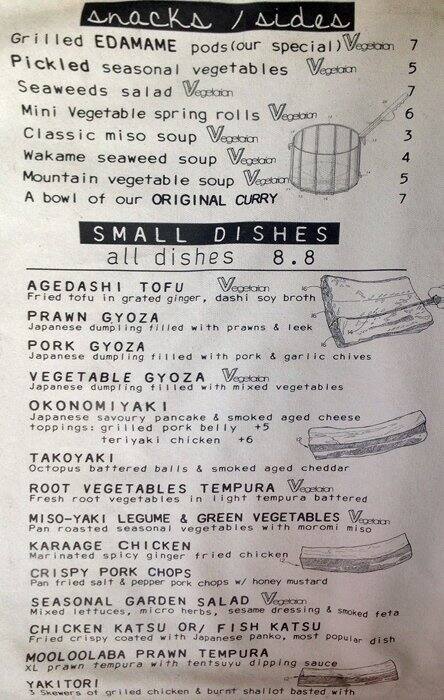 snacks / sides
Grilled EDAMAME pods(our special) Vegetarian 7
Pickled seasonal vegetables Vegetarian 5
Seaweeds salad Vegetarian 7
Mini Vegetable spring rolls Vegetarian 6
Classic miso soup Vegetarian 3
Wakame seaweed soup Vegetarian 4
Mountain vegetable soup Vegetarian 5
A bowl of our ORIGINAL CURRY 7
SMALL DISHES
all dishes 8.8
AGEDASHI TOFU Vegetarian
Fried tofu in grated ginger, dashi soy broth
PRAWN GYOZA
Japanese dumpling filled with prawns & leek
PORK GYOZA
Japanese dumpling filled with pork & garlic chives
VEGETABLE GYOZA Vegetarian
Japanese dumpling filled with mixed vegetables
OKONOMIYAKI
Japanese savoury pancake & smoked aged cheese
toppings: grilled pork belly +5
teriyaki chicken +6
TAKOYAKI
Octopus battered balls & smoked aged cheddar
ROOT VEGETABLES TEMPURA Vegetarian
Fresh root vegetables in light tempura battered
MISO-YAKI LEGUME & GREEN VEGETABLES Vegetarian
Pan roasted seasonal vegetables with moromi miso
KARAAGE CHICKEN
Marinated spicy ginger fried chicken
CRISPY PORK CHOPS
Pan fried salt & pepper pork chops w/ honey mustard
SEASONAL GARDEN SALAD Vegetarian
Mixed lettuces, micro herbs, sesame dressing & smoked feta
CHICKEN KATSU OR/ FISH KATSU
Fried crispy coated with Japanese panko, most popular dish
MOOLOOLABA PRAWN TEMPURA
XL prawn tempura with tentsuyu dipping sauce
YAKITORI
3 Skewers of grilled chicken & burnt shallot basted with